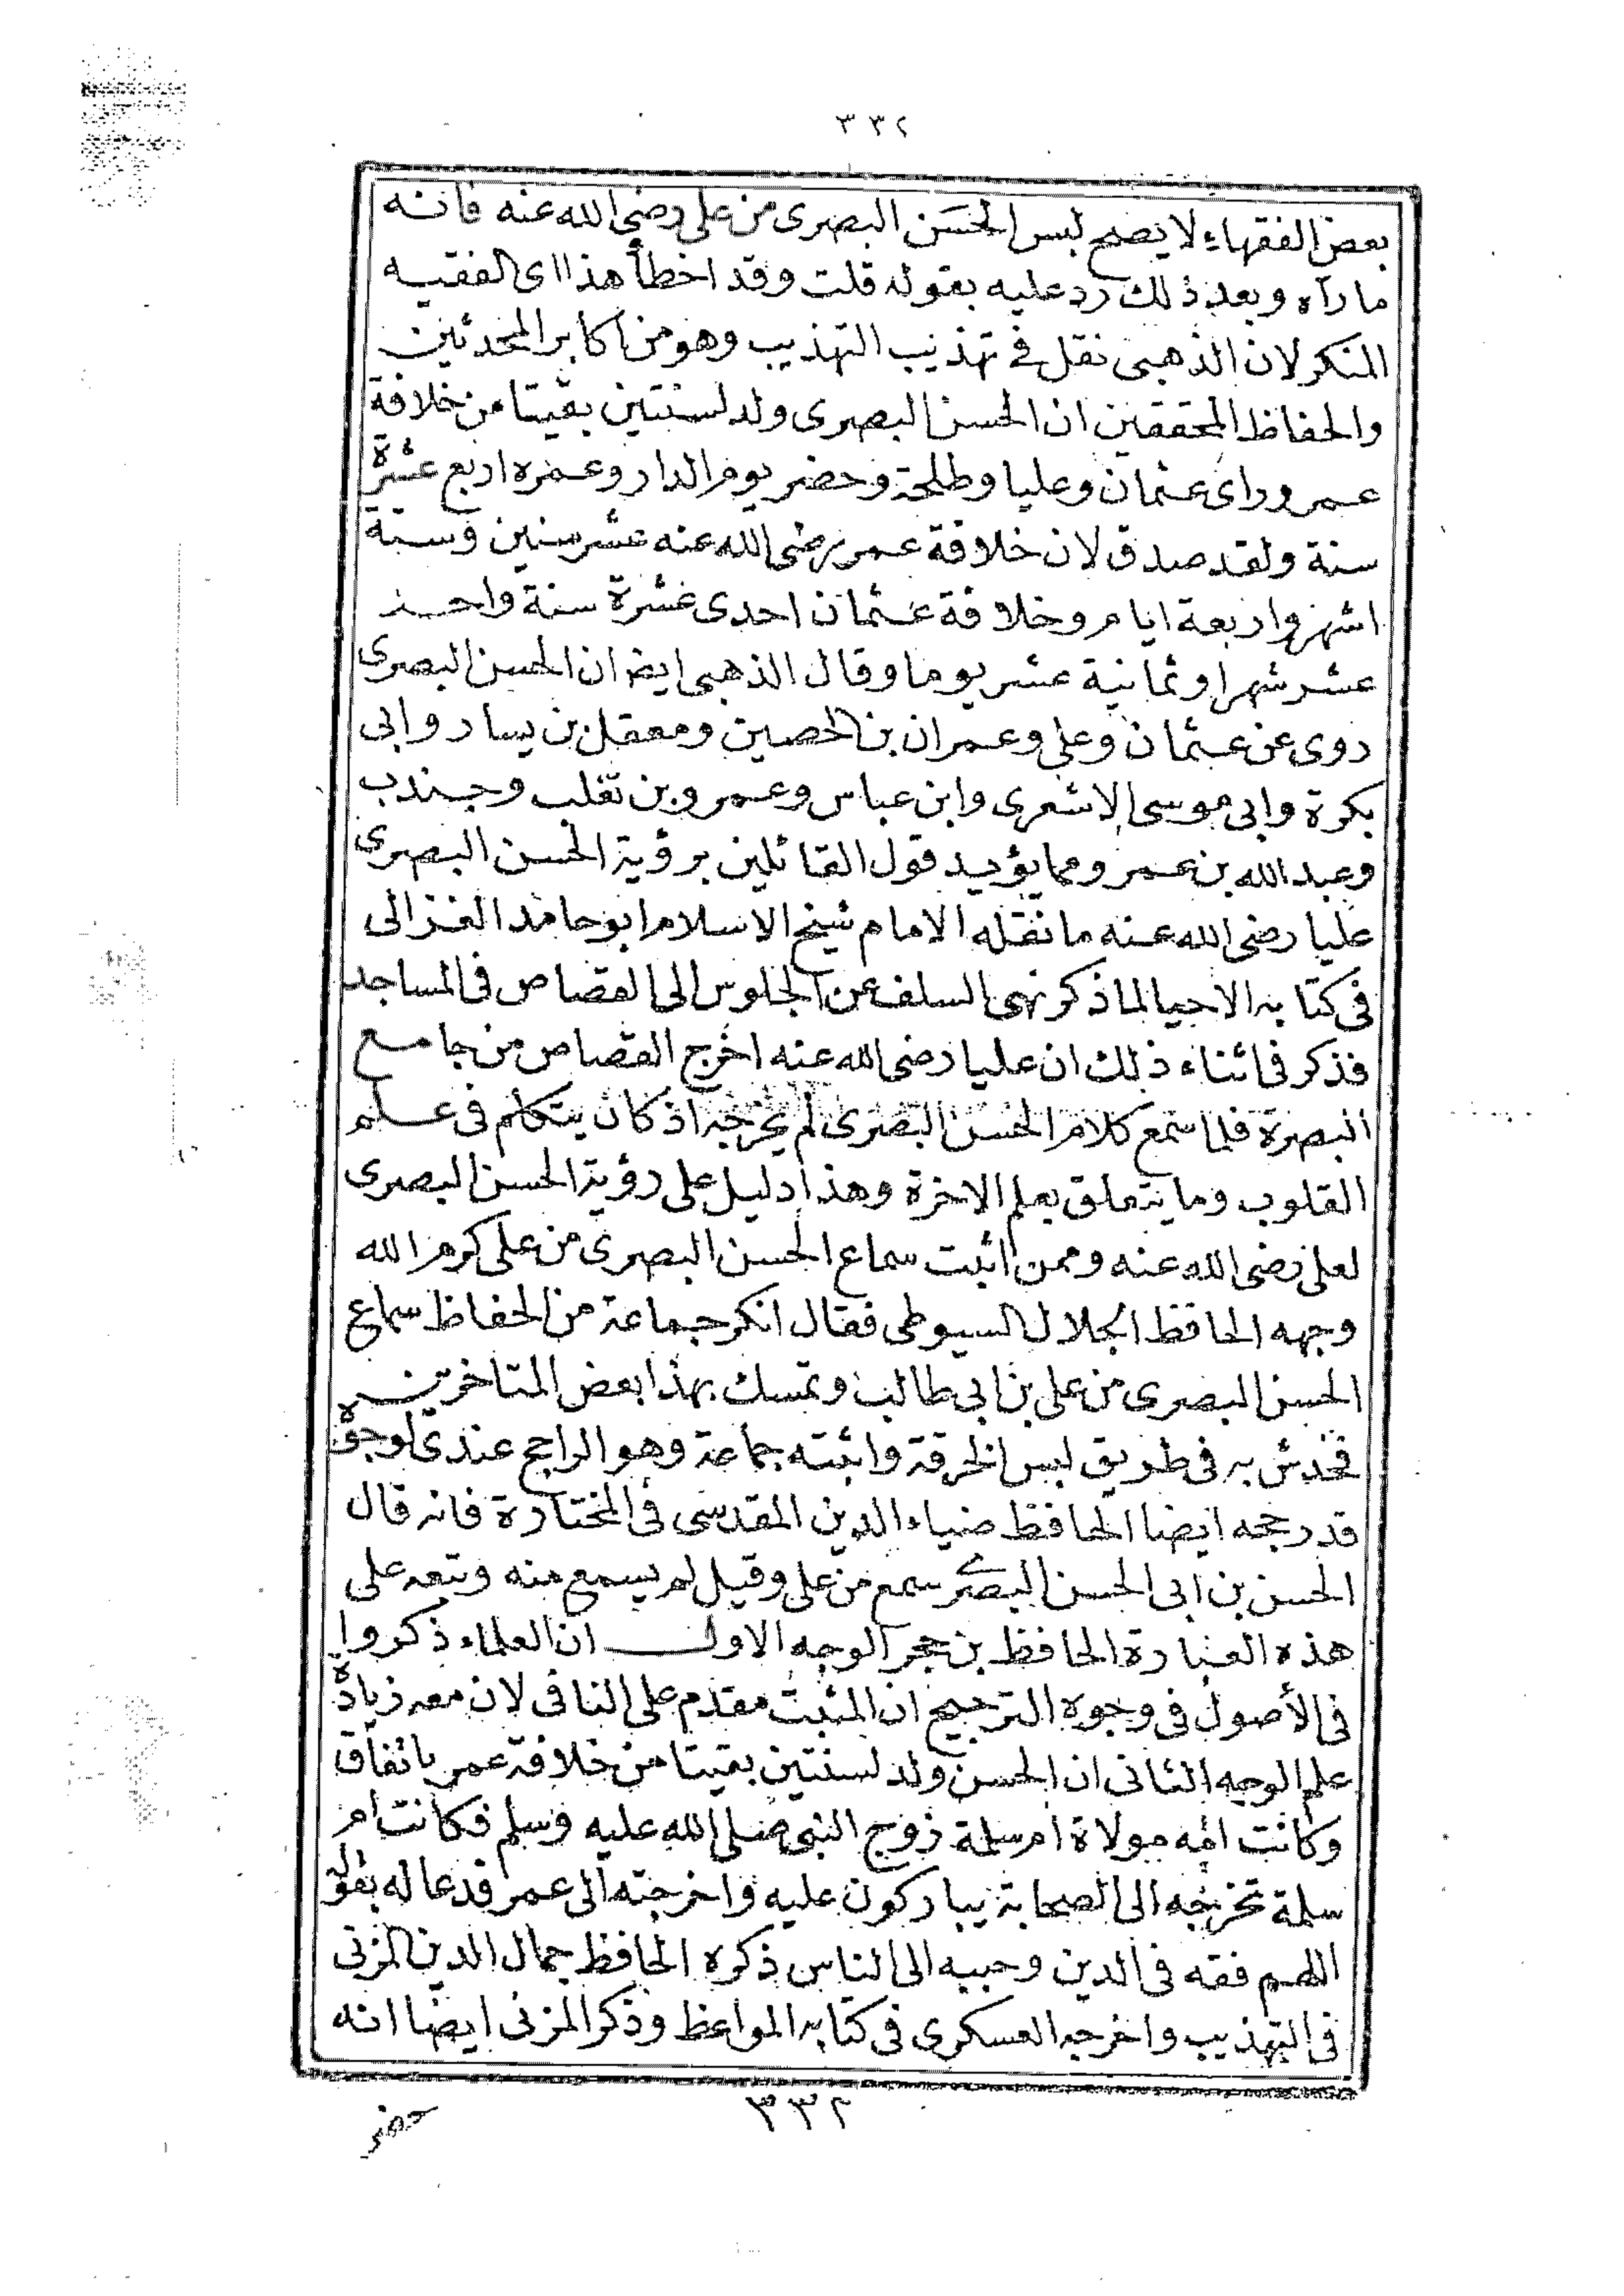 ٣٣٢
بعض الفقهاء لا يصح لبس الحسَن البصرى من على رضى الله عنه فانه
ما رآه وبعد ذلك رد عليه بقوله قلت وقد اخطأ هذا اى الفقيه
المنكر لان الذهبى نقل فى تهذيب التهذيب وهو من اكابر المحدثين
والحفاظ المحققين ان الحسن البصرى ولد لسنتين بقيتا من خلافة
عمر وراى عثمان وعليا وطلحة وحضر يوم الدار وعمره اربع عشرة
سنة ولقد صدق لان خلافة عمر رضى الله عنه عشر سنين وستة
اشهر واربعة ايام وخلافة عثمان احدى عشرة سنة واحد
عشر شهرا وثمانية عشر يوما وقال الذهبى ايضا ان الحسن البصرى
روى عن عثمان وعلى وعمران بن الحصين ومعقل بن يسار وابى
بكرة وابى موسى الاشعرى وابن عباس وعمرو بن تغلب وجندب
وعبد الله بن عمر ومما يؤيد قول القائلين برؤية الحسن البصرى
عليا رضى الله عنه ما نقله الامام شيخ الاسلام ابو حامد الغزالى
فى كتابه الاحيا لما ذكر نهى السلف عن الجلوس الى القصاص فى المساجد
فذكر فى اثناء ذلك ان عليا رضى الله عنه اخرج القصاص من جامع
البصرة فلما سمع كلام الحسن البصرى لم يخرجه اذ كان يتكلم فى علم
القلوب وما يتعلق بعلم الاخرة وهذا دليل على رؤية الحسن البصرى
لعلى رضى الله عنه وممن اثبت سماع الحسن البصرى من على كرم الله
وجهه الحافظ الجلال السيوطى فقال انكر جماعة من الحفاظ سماع
الحسن البصرى من على بن ابى طالب وتمسك بهذا بعض المتاخرين
فخدش به فى طريق لبس الخرقة واثبته جماعة وهو الراجح عندى لوجوه
قد رجحه ايضا الحافظ ضياء الدين المقدسى فى المختارة فانه قال
الحسن بن ابى الحسن البصرى سمع من على وقيل لم يسمع منه وتبعه على
هذه العبارة الحافظ بن حجر الوجه الاول ان العلماء ذكروا
فى الأصول فى وجوه الترجيح ان المثبت مقدم على النافى لان معه زيادة
علم الوجه الثانى ان الحسن ولد لسنتين بقيتا من خلافة عمر باتفاق
وكانت امه مولاة ام سلمة زوج النبى صلى الله عليه وسلم فكانت ام
سلمة تخرجه الى الصحابة يباركون عليه واخرجته الى عمر فدعا له بقوله
اللهم فقه فى الدين وحببه الى الناس ذكره الحافظ جمال الدين المزنى
فى التهذيب واخرجه العسكرى فى كتابه المواعظ وذكر المزنى ايضا انه
٣٣٢
حضر